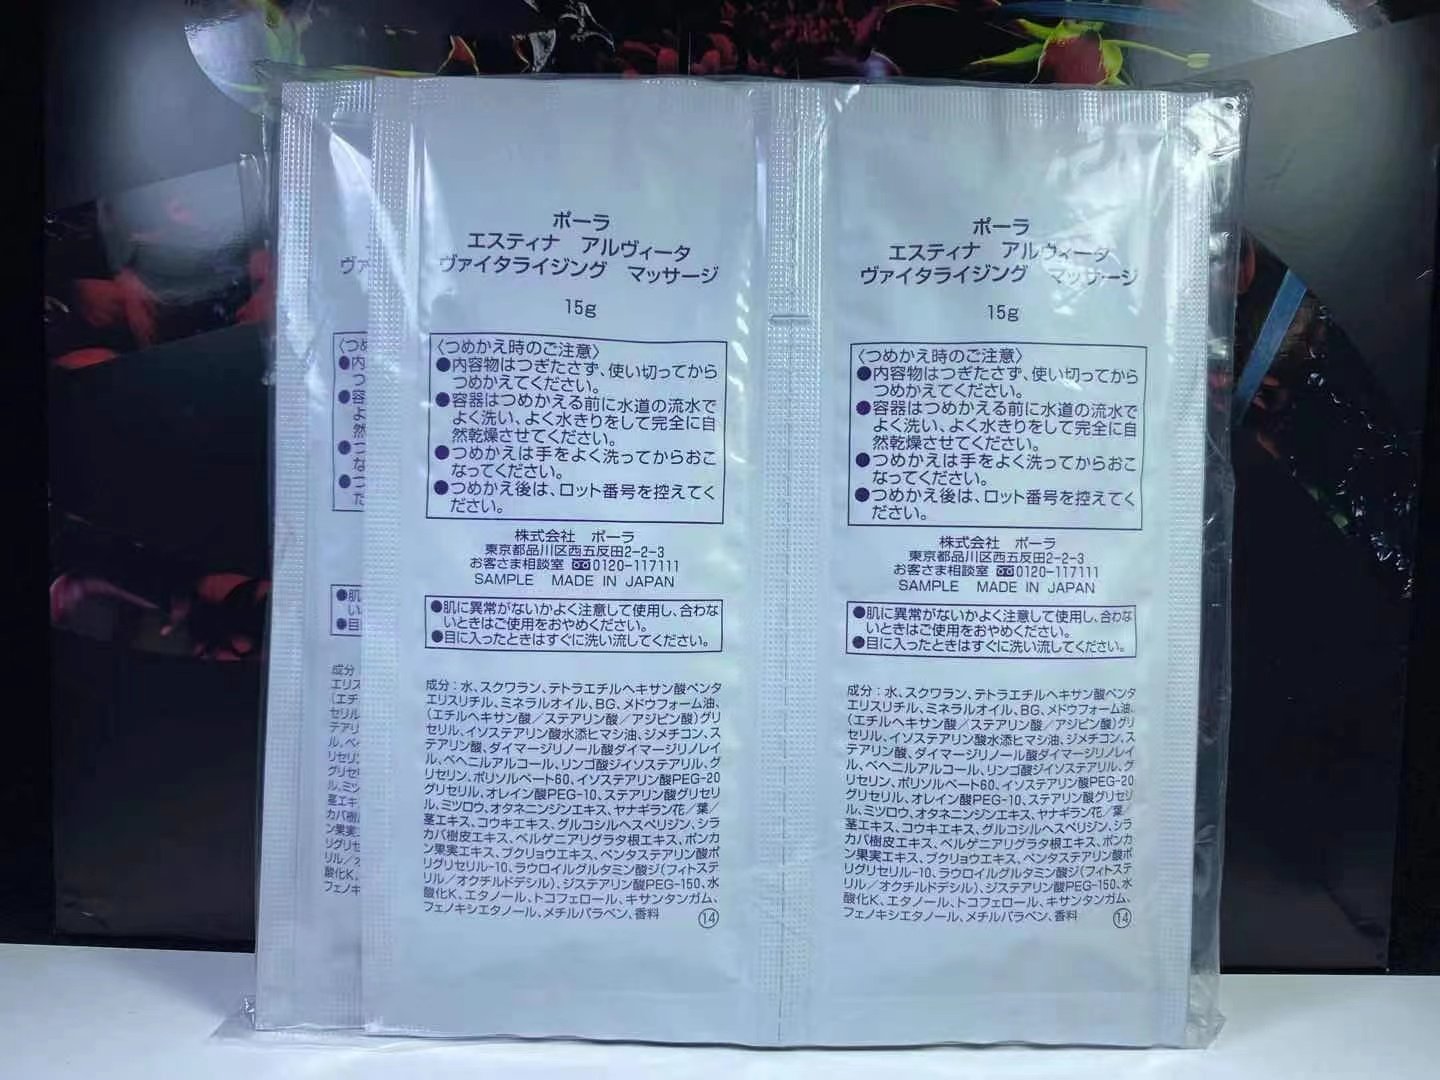 ポーラ
エスティナ　アルヴィータ
ヴァイタライジング　マッサージ
15g
〈つめかえ時のご注意〉
●内容物はつぎたさず、使い切ってから
つめかえてください。
●容器はつめかえる前に水道の流水で
よく洗い、よく水きりをして完全に自
然乾燥させてください。
●つめかえは手をよく洗ってからおこ
なってください。
●つめかえ後は、ロット番号を控えてく
ださい。
株式会社　ポーラ
東京都品川区西五反田2-2-3
お客さま相談室 0120-117111
SAMPLE　MADE IN JAPAN
●肌に異常がないかよく注意して使用し、合わな
いときはご使用をおやめください。
●目に入ったときはすぐに洗い流してください。
成分：水、スクワラン、テトラエチルヘキサン酸ペンタ
エリスリチル、ミネラルオイル、BG、メドウフォーム油、
(エチルヘキサン酸／ステアリン酸／アジピン酸)グリ
セリル、イソステアリン酸水添ヒマシ油、ジメチコン、ス
テアリン酸、ダイマージリノール酸ダイマージリノレイ
ル、ベヘニルアルコール、リンゴ酸ジイソステアリル、グ
リセリン、ポリソルベート60、イソステアリン酸PEG-20
グリセリル、オレイン酸PEG-10、ステアリン酸グリセリ
ル、ミツロウ、オタネニンジンエキス、ヤナギラン花／葉／
茎エキス、コウキエキス、グルコシルヘスペリジン、シラ
カバ樹皮エキス、ベルゲニアリグラタ根エキス、ポンカ
ン果実エキス、ブクリョウエキス、ペンタステアリン酸ポ
リグリセリル-10、ラウロイルグルタミン酸ジ(フィトステ
リル／オクチルドデシル)、ジステアリン酸PEG-150、水
酸化K、エタノール、トコフェロール、キサンタンガム、
フェノキシエタノール、メチルパラベン、香料
⑭
ポーラ
エスティナ　アルヴィータ
ヴァイタライジング　マッサージ
15g
〈つめかえ時のご注意〉
●内容物はつぎたさず、使い切ってから
つめかえてください。
●容器はつめかえる前に水道の流水で
よく洗い、よく水きりをして完全に自
然乾燥させてください。
●つめかえは手をよく洗ってからおこ
なってください。
●つめかえ後は、ロット番号を控えてく
ださい。
株式会社　ポーラ
東京都品川区西五反田2-2-3
お客さま相談室 0120-117111
SAMPLE　MADE IN JAPAN
●肌に異常がないかよく注意して使用し、合わな
いときはご使用をおやめください。
●目に入ったときはすぐに洗い流してください。
成分：水、スクワラン、テトラエチルヘキサン酸ペンタ
エリスリチル、ミネラルオイル、BG、メドウフォーム油、
(エチルヘキサン酸／ステアリン酸／アジピン酸)グリ
セリル、イソステアリン酸水添ヒマシ油、ジメチコン、ス
テアリン酸、ダイマージリノール酸ダイマージリノレイ
ル、ベヘニルアルコール、リンゴ酸ジイソステアリル、グ
リセリン、ポリソルベート60、イソステアリン酸PEG-20
グリセリル、オレイン酸PEG-10、ステアリン酸グリセリ
ル、ミツロウ、オタネニンジンエキス、ヤナギラン花／葉／
茎エキス、コウキエキス、グルコシルヘスペリジン、シラ
カバ樹皮エキス、ベルゲニアリグラタ根エキス、ポンカ
ン果実エキス、ブクリョウエキス、ペンタステアリン酸ポ
リグリセリル-10、ラウロイルグルタミン酸ジ(フィトステ
リル／オクチルドデシル)、ジステアリン酸PEG-150、水
酸化K、エタノール、トコフェロール、キサンタンガム、
フェノキシエタノール、メチルパラベン、香料
⑭